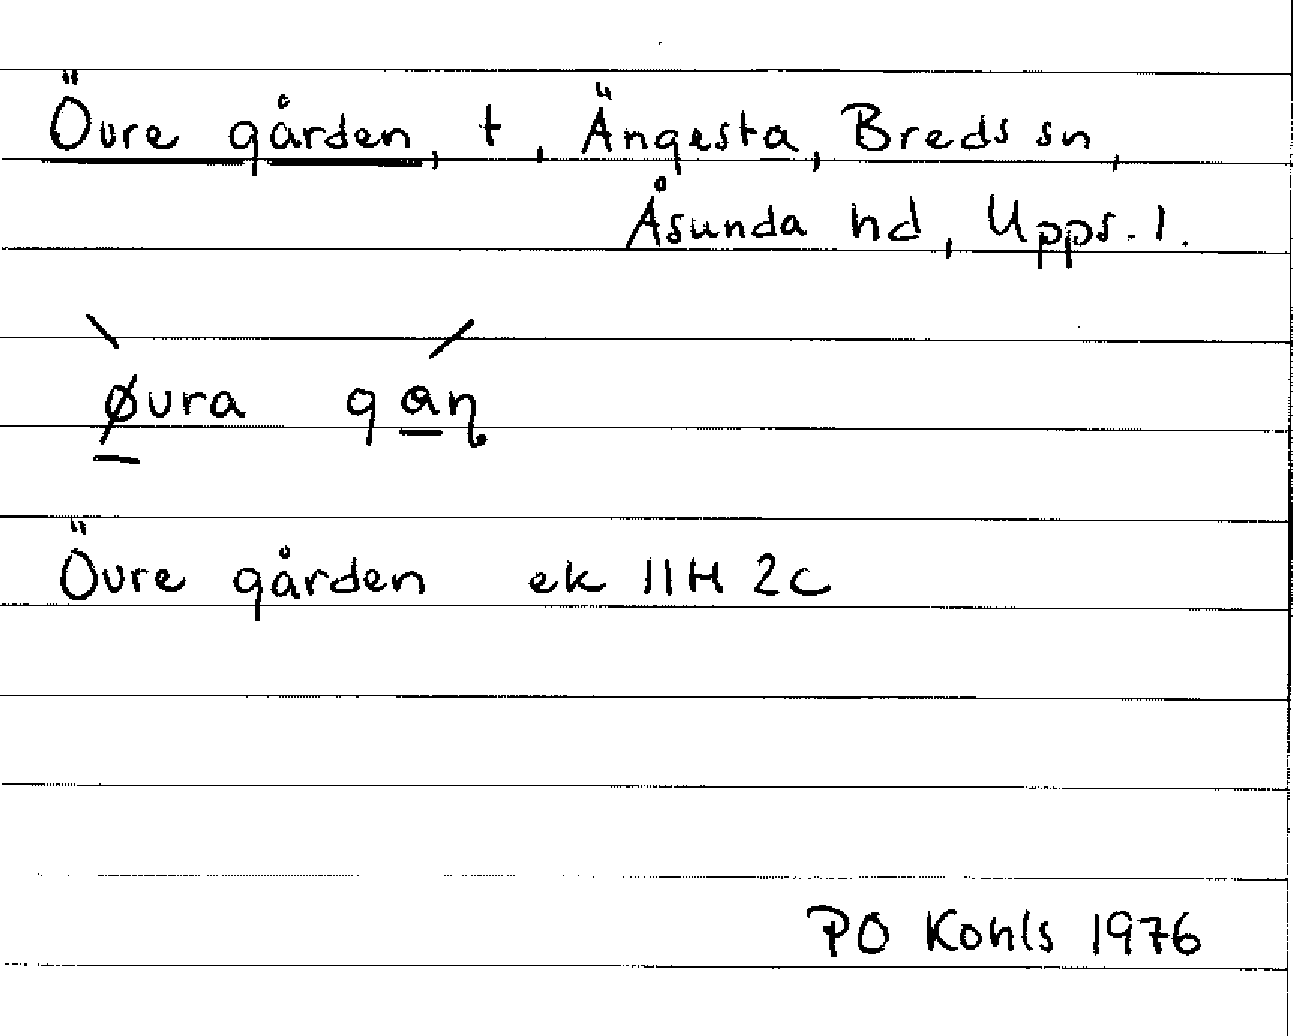 Övre gården, t, Ängesta, Breds sn,
Åsunda hd, Upps. l.
øvra gaɳ
Övre gården ek 11H 2c
PO Kohls 1976